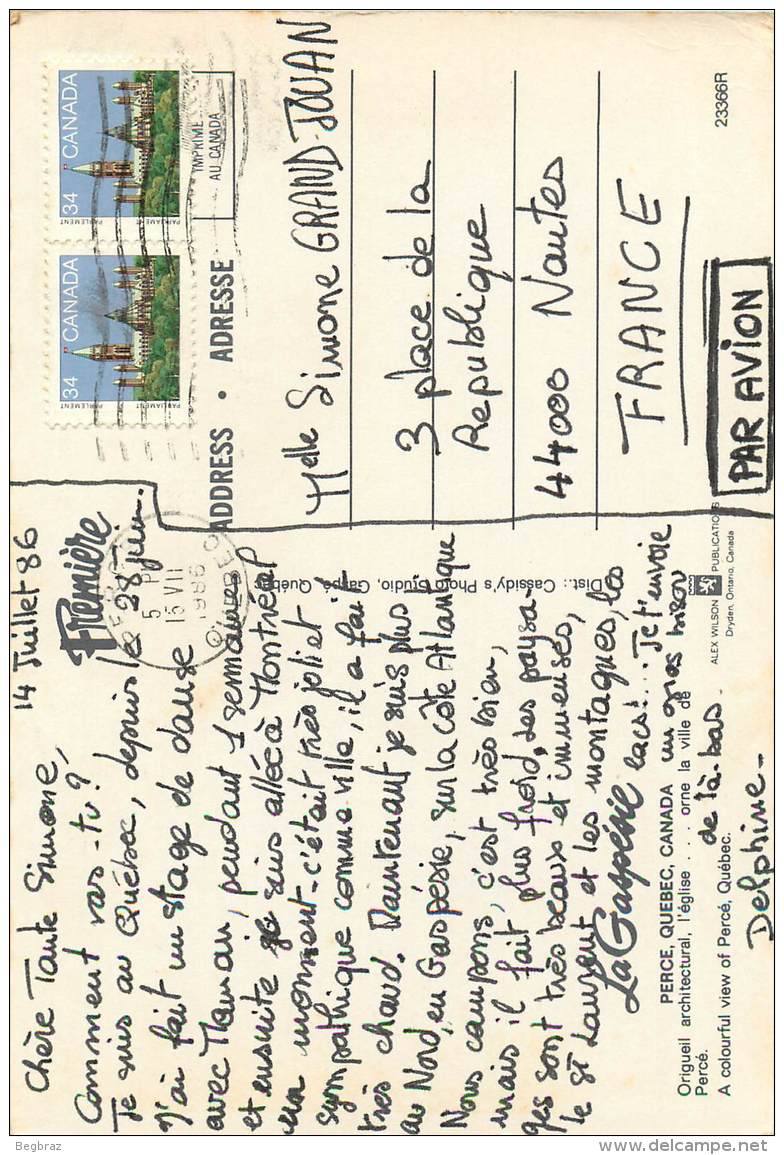 14 Juillet 86
Chère Tante Simone,
Comment vas-tu?
Je suis au Québec, depuis le 28 juin.
J'ai fait un stage de danse
avec Maman, pendant 1 semaine
et ensuite je suis allée à Montréal
un moment - c'était très joli et
sympathique comme ville, il a fait
très chaud. Maintenant je suis plus
au Nord, en Gaspésie, sur la côte Atlantique
Nous campons, c'est très bien,
mais il fait plus froid, les paysa-
ges sont très beaux et immenses,
le St Laurent et les montagnes, les
lacs!... Je t'envoie
un gros bisou
de là-bas.
Delphine.
La Gaspésie
PERCE, QUEBEC, CANADA
Origueil architectural, l'église . . . orne la ville de
Percé.
A colourful view of Percé, Québec.
Première
5 PM
15 VII
1986
QUEBEC
Dist.: Cassidy's Photo Studio, Gaspé, Québec
ALEX WILSON PUBLICATIONS
Dryden, Ontario, Canada
34 CANADA
PARLEMENT PARLIAMENT
34 CANADA
PARLEMENT PARLIAMENT
IMPRIMÉ
AU CANADA
ADDRESS • ADRESSE
Melle Simone GRAND-JOUAN
3 place de la
République
44000 Nantes
FRANCE
PAR AVION
23366R
Begbraz
delcampe.net